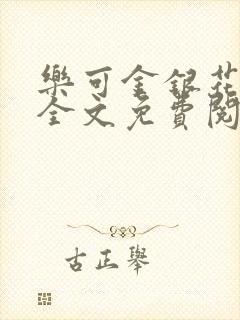 樂可金銀花
全文免費閱
古正舉